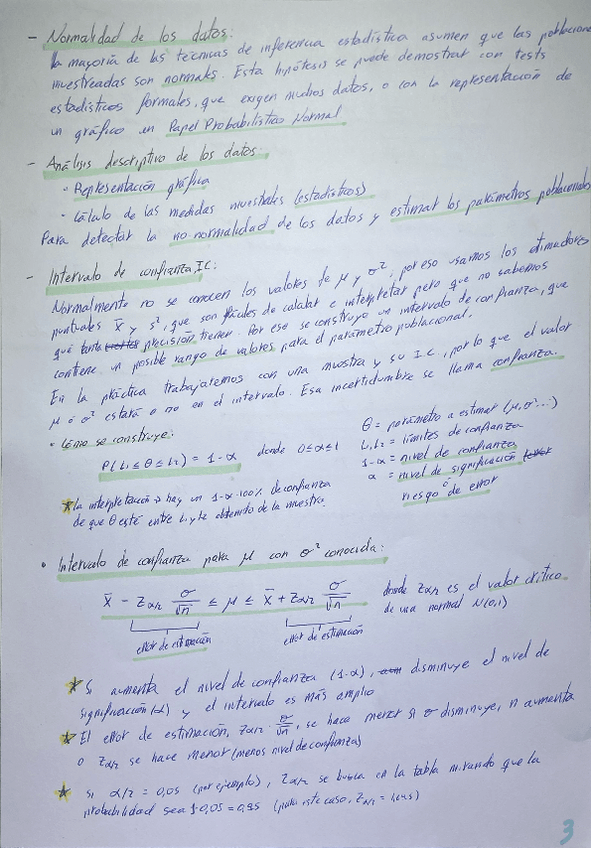 - Normalidad de los datos:
la mayoría de las técnicas de inferencia estadística asumen que las poblacione
muestreadas son normales. Esta hipótesis se puede demostrar con tests
estadísticos formales, que exigen muchos datos, o con la representación de
un gráfico en Papel Probabilístico Normal
- Análisis descriptivo de los datos:
· Representación gráfica
· Cálculo de las medidas muestrales (estadísticos)
Para detectar la no normalidad de los datos y estimar los parámetros poblacionales
- Intervalo de confianza, IC:
Normalmente no se conocen los valores de μ y σ², por eso usamos los estimadores
puntuales x̄ y s², que son fáciles de calcular e interpretar pero que no sabemos
qué tanta precisión tienen. Por eso se construye un intervalo de confianza, que
contiene un posible rango de valores para el parámetro poblacional.
En la práctica trabajaremos con una muestra y su I.C., por lo que el valor
μ o σ² estará o no en el intervalo. Esa incertidumbre se llama confianza.
· Cómo se construye:
P(L₁ ≤ θ ≤ L₂) = 1-α donde 0≤α≤1
θ = parámetro a estimar (μ, σ²...)
L₁, L₂ = límites de confianza
1-α = nivel de confianza
α = nivel de significación
o
riesgo de error
* la interpretación → hay un 1-α·100% de confianza
de que θ esté entre L₁ y L₂ obtenido de la muestra.
· Intervalo de confianza para μ con σ² conocida:
x̄ - Zα/2 σ/√n ≤ μ ≤ x̄ + Zα/2 σ/√n donde Zα/2 es el valor crítico
de una normal N(0,1)
error de estimación error de estimación
* Si aumenta el nivel de confianza (1-α), disminuye el nivel de
significación (α) y el intervalo es más amplio
* El error de estimación, Zα/2 · σ/√n, se hace menor si σ disminuye, n aumenta
o Zα/2 se hace menor (menos nivel de confianza)
* si α/2 = 0,05 (por ejemplo), Zα/2 se busca en la tabla mirando que la
probabilidad sea 1-0,05 = 0,95 (para este caso, Zα/2 = 1,645)
3